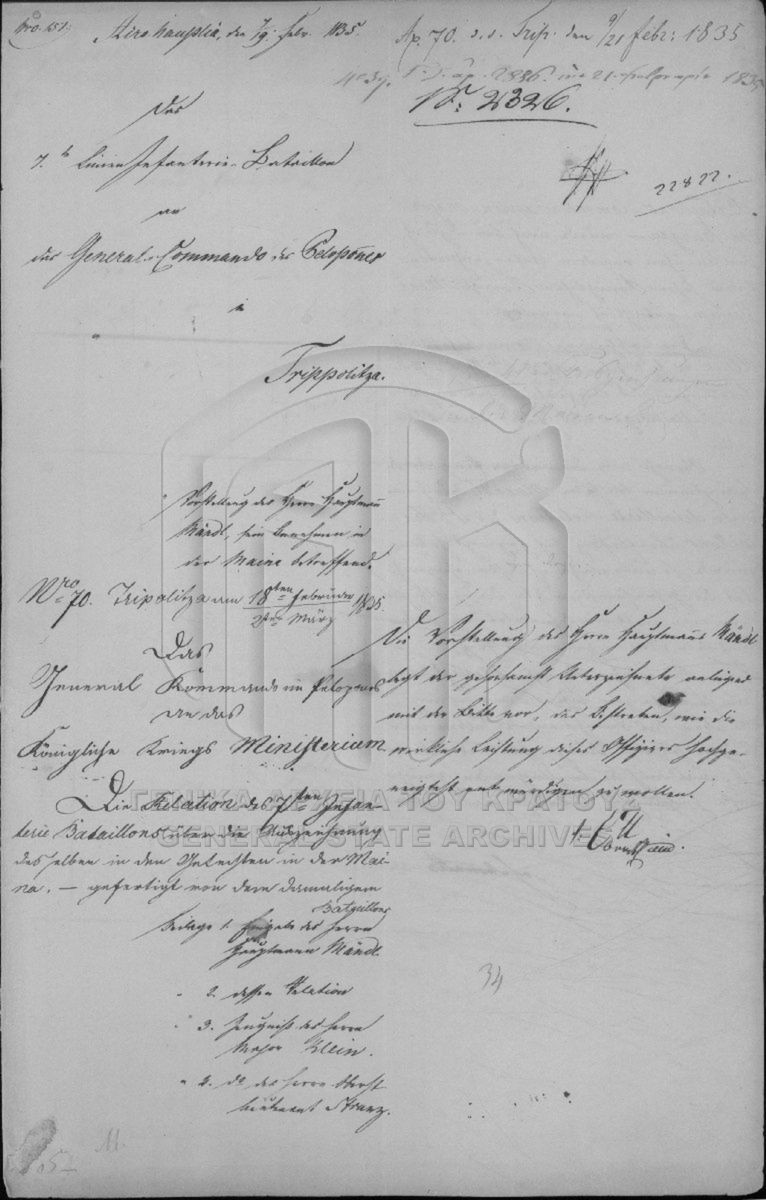 Nro. 157.
den 7/19. Febr. 1835.
Das
7.te Linien Infanterie-Bataillon
an
das General-Commando des Peloponnes
in
Trippolitza.
Vorstellung des Herrn Hauptmann
Mändl, sein Benehmen in
der Maina betreffend.
Nro 70. Tripolitza am 18ten Februar / 2ten März 1835.
Das
General Kommando im Peloponnes
an das
Königliche Kriegs Ministerium
Die Relation des 7ten Infan-
terie Bataillons über die Auszeichnung
desselben in den Gefechten in der Mai-
na. — gefertigt von dem damaligen
Bataillons
Beilage 1. Eingabe des Herrn
Hauptmann Mändl.
" 2. dessen Relation
" 3. Zeugniß des Herrn
Major Klein.
" 4. do des Herrn Oberst
lieutenant Stranz.
Αρ. 70. Trip. den 9/21 Febr: 1835
1835
N: 2326.
22822.
Die Vorstellung des Herrn Hauptmanns Mändl
legt der gehorsamst Unterzeichnete anliegend
mit der Bitte vor, das Bestreben, wie die
wirkliche Leistung dieses Offiziers hochge-
neigtest würdigen zu wollen.
34
ΓΕΝΙΚΑ ΑΡΧΕΙΑ ΤΟΥ ΚΡΑΤΟΥΣ
GENERAL STATE ARCHIVES